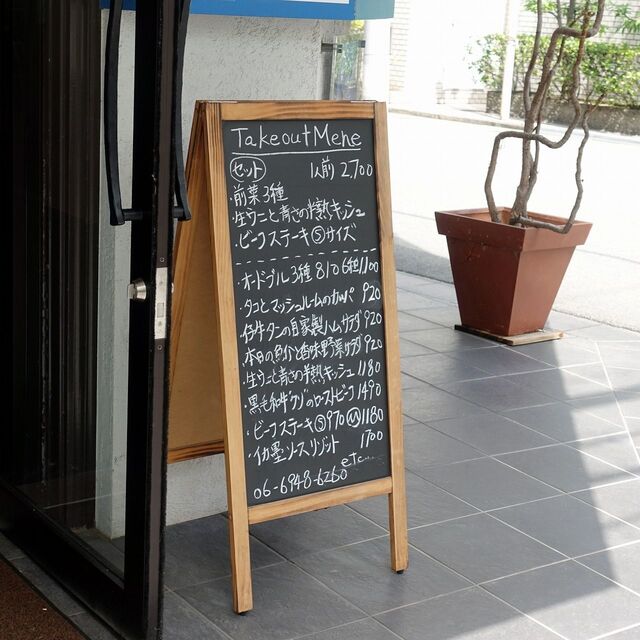 Takeout Mene
セット 1人前 2,700
・前菜3種
・生うにと青さの半熟キッシュ
・ビーフステーキⓈサイズ
・オードブル3種810 6種1100
・タコとマッシュルームのカッパ 920
・仔牛タンの自家製ハムサラダ 920
・本日の魚介と香味野菜サラダ 920
・生うにと青さの半熟キッシュ 1180
・黒毛和牛ウデのローストビーフ 1490
・ビーフステーキⓈ970 Ⓜ1180
・イカ墨ソースリゾット 1700
etc...
06-6948-6260